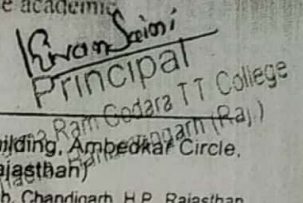 e academic
Principal
Ram Godara TT College
ilding, Ambedkar Circle,
ajasthan)
(Raj.)
b, Chandigarh, H.P., Rajasthan